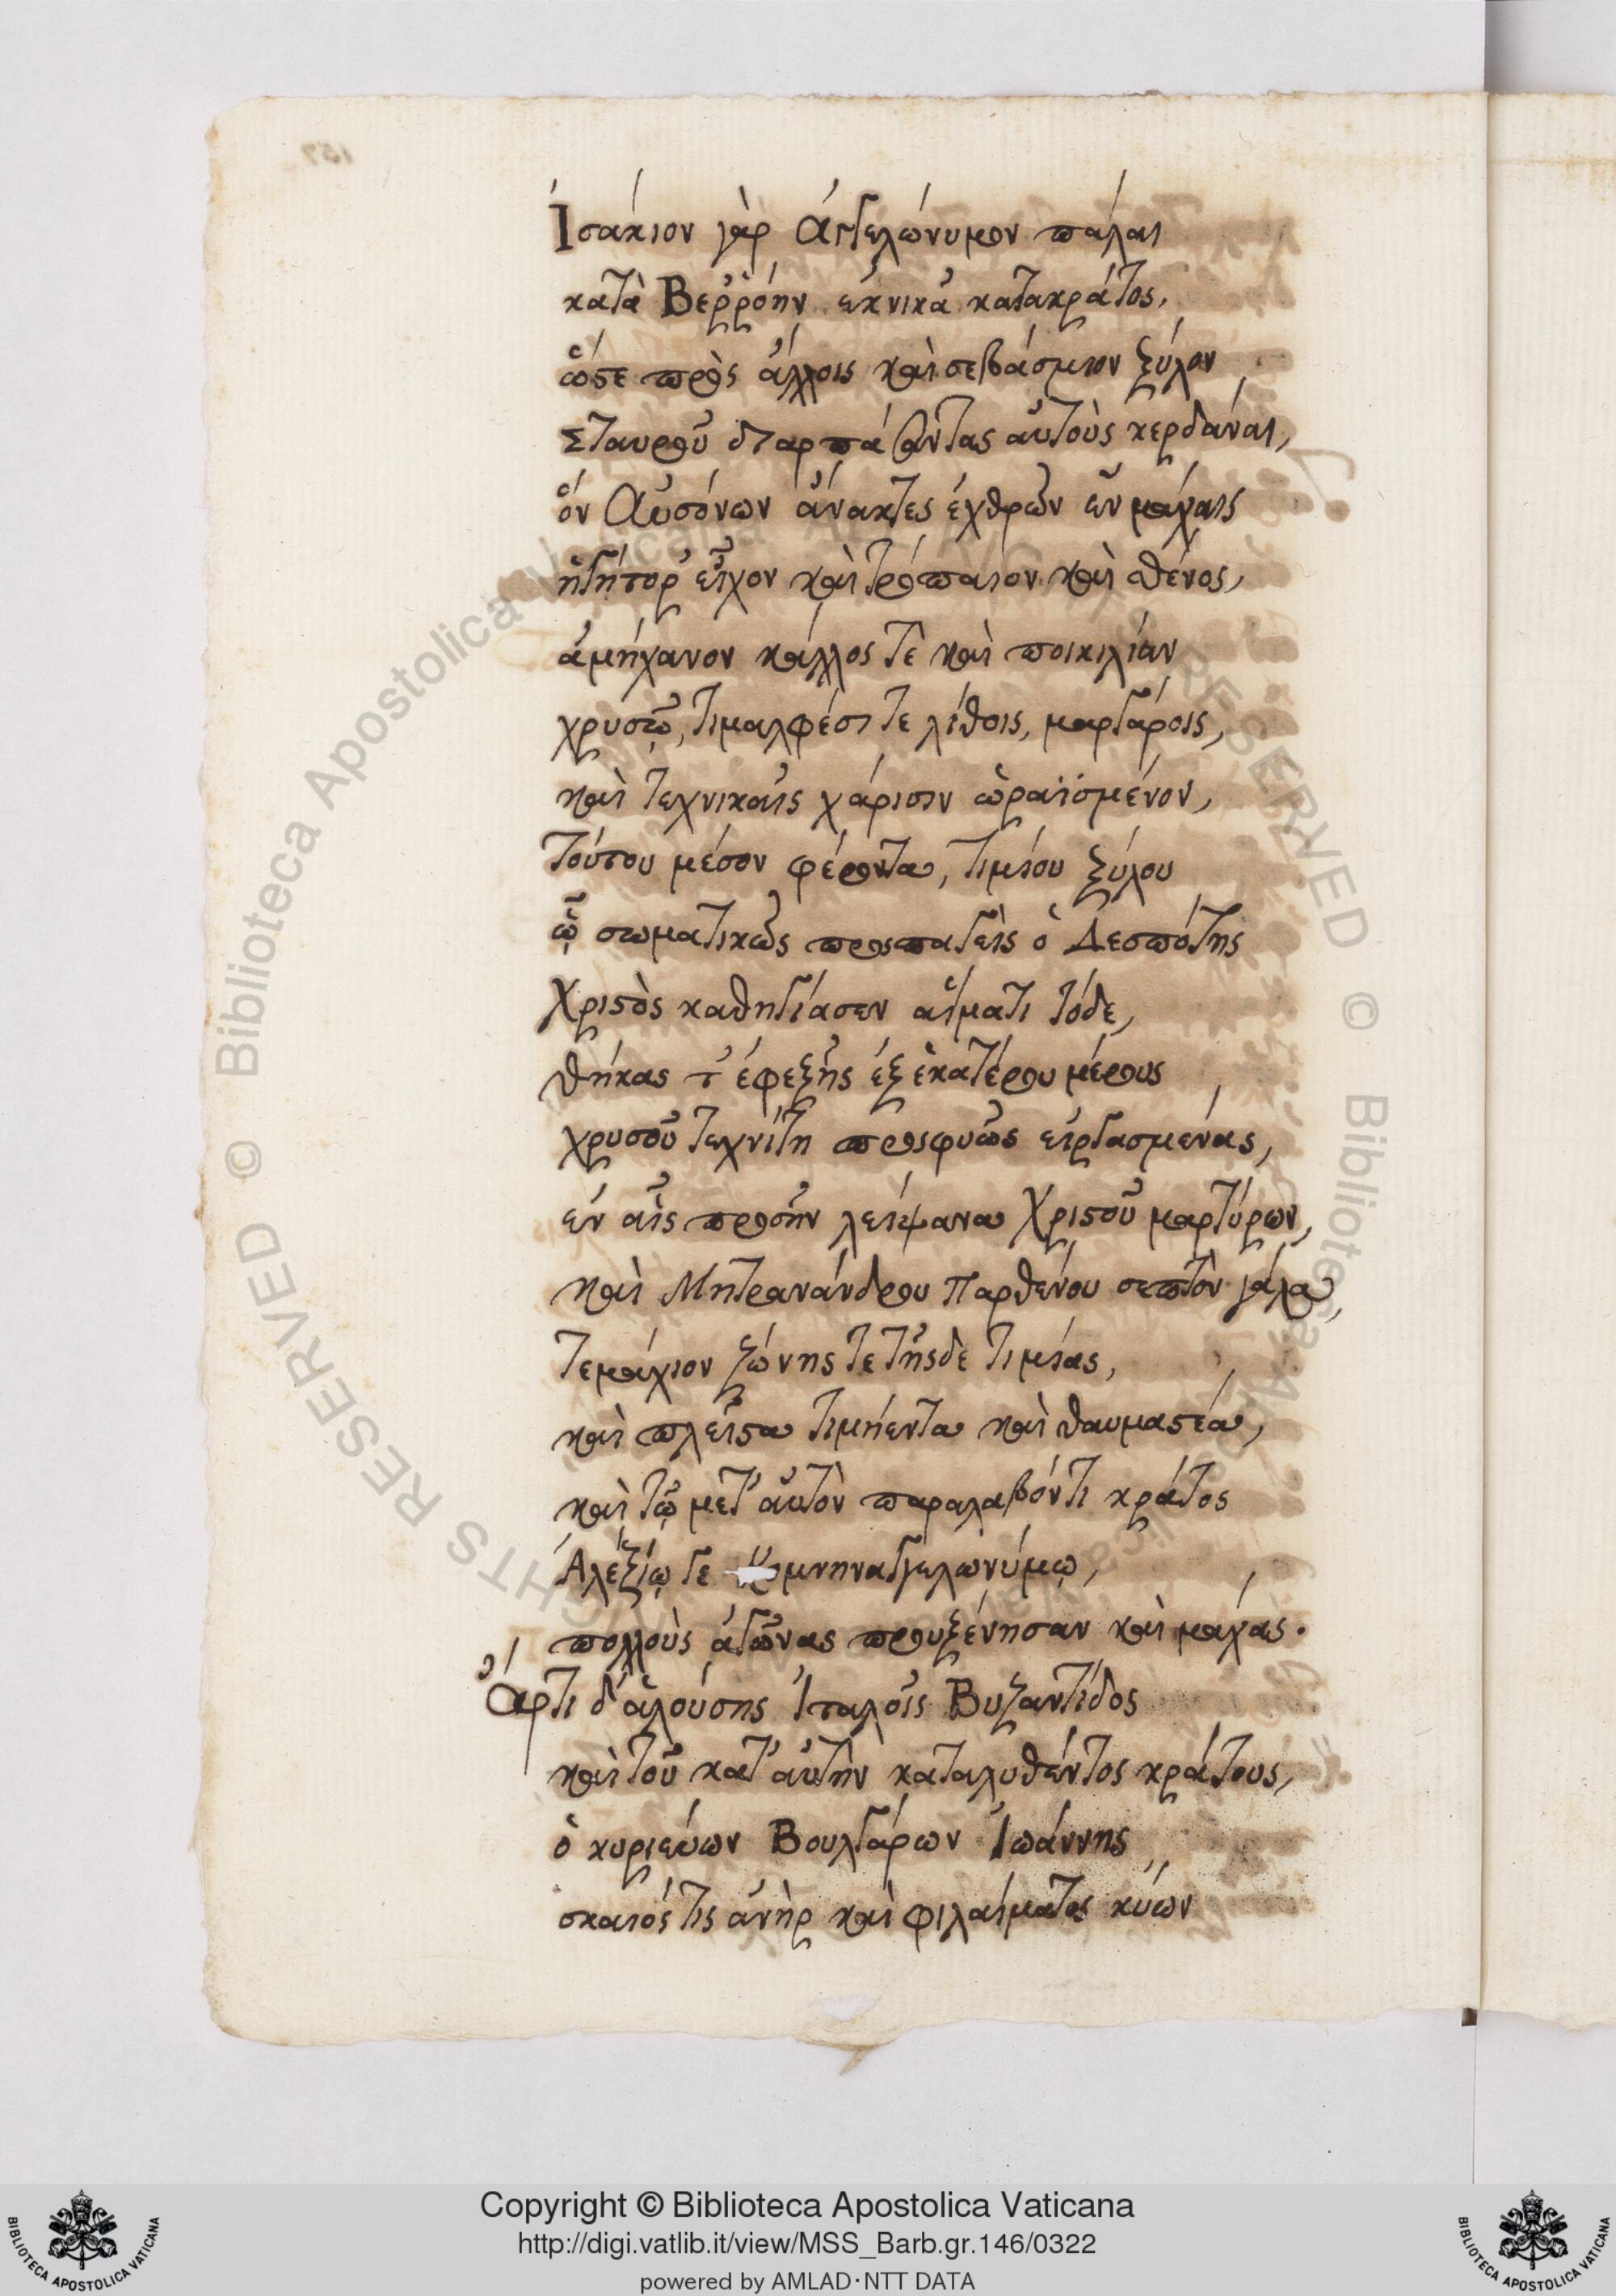 Ἰσαάκιον γὰρ Ἀγγελώνυμον πάλαι
κατὰ Βεῤῥόην ἐκνικᾷ κατακράτος,
ὥστε πρὸς ἄλλοις καὶ σεβάσμιον ξύλον
Σταυροῦ διαρπάσαντας αὐτοὺς κερδάναι,
ὃν Αὐσόνων ἄνακτες ἐχθρῶν ἐν μάχαις
ἡγήτορ' εἶχον καὶ τρόπαιον καὶ σθένος,
ἀμήχανον κάλλος τὲ καὶ ποικιλίαν
χρυσῷ, τιμαλφέσι τε λίθοις, μαργάροις,
καὶ τεχνικαῖς χάρισιν ὡραϊσμένον,
τούτου μέσον φέροντα, τιμίου ξύλου
ᾧ σωματικῶς προσπαγεὶς ὁ Δεσπότης
Χριστὸς καθηγίασεν αἵματι τόδε,
θήκας τ' ἐφεξῆς ἐξ ἑκατέρου μέρους
χρυσοῦ τεχνίτῃ προσφυῶς εἰργασμένας,
ἐν αἷς προσῆν λείψανα Χριστοῦ μαρτύρων,
καὶ Μητρανάνδρου Παρθένου σεπτὸν γάλα,
τεμάχιον ζώνης τε τῆσδε τιμίας,
καὶ πλεῖστα τιμήεντα καὶ θαυμαστέα,
καὶ τῷ μετ' αὐτὸν παραλαβόντι κράτος
Ἀλεξίῳ γε Κομνηναγγελωνύμῳ,
πολλοὺς ἀγῶνας προυξένησαν καὶ μάχας.
Ἄρτι δ' ἁλούσης Ἰταλοῖς Βυζαντίδος
καὶ τοῦ κατ' αὐτὴν καταλυθέντος κράτους,
ὁ κυριεύων Βουλγάρων Ἰωάννης
σκαιός τις ἀνὴρ καὶ φιλαίματος κύων
Copyright © Biblioteca Apostolica Vaticana
http://digi.vatlib.it/view/MSS_Barb.gr.146/0322
powered by AMLAD·NTT DATA